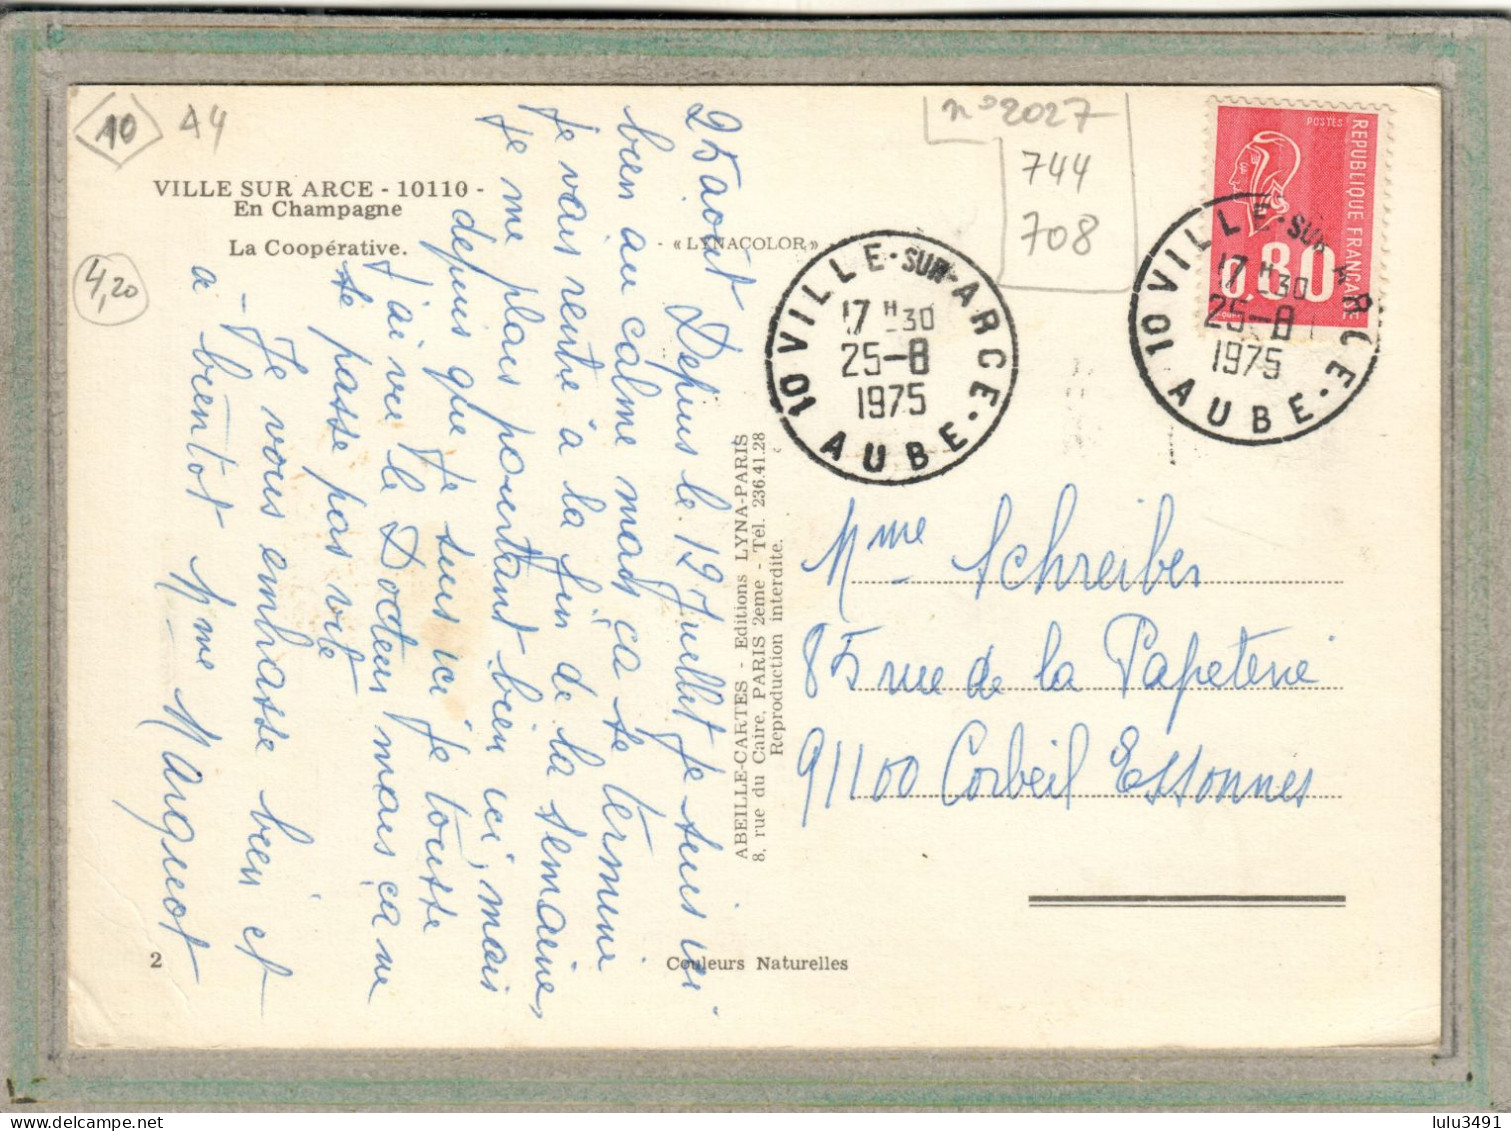 10
A4
n°2027
744
708
POSTES
REPUBLIQUE FRANCAISE
0,80
VILLE SUR ARCE - 10110 -
En Champagne
La Coopérative.
4,20
- « LYNACOLOR » -
10 VILLE-SUR-ARCE.
17 H 30
25-8
1975
AUBE
10 VILLE-SUR-ARCE.
17 H 30
25-8
1975
AUBE
25 août Depuis le 12 Juillet je suis ici
bien au calme mais ça se termine
je vais rentré à la fin de la semaine,
je me plais pourtant bien ici, mais
depuis que je suis ici je tousse
j'ai vu le Docteur mais ça ne
se passe pas vite
- Je vous embrasse bien et
a bientot Mme Marguot
ABEILLE-CARTES - Editions LYNA-PARIS
8, rue du Caire, PARIS 2eme - Tél. 236.41.28
Reproduction interdite.
Mme Schreiber
85 rue de la Papeterie
91100 Corbeil Essonnes
2
Couleurs Naturelles
lulu3491